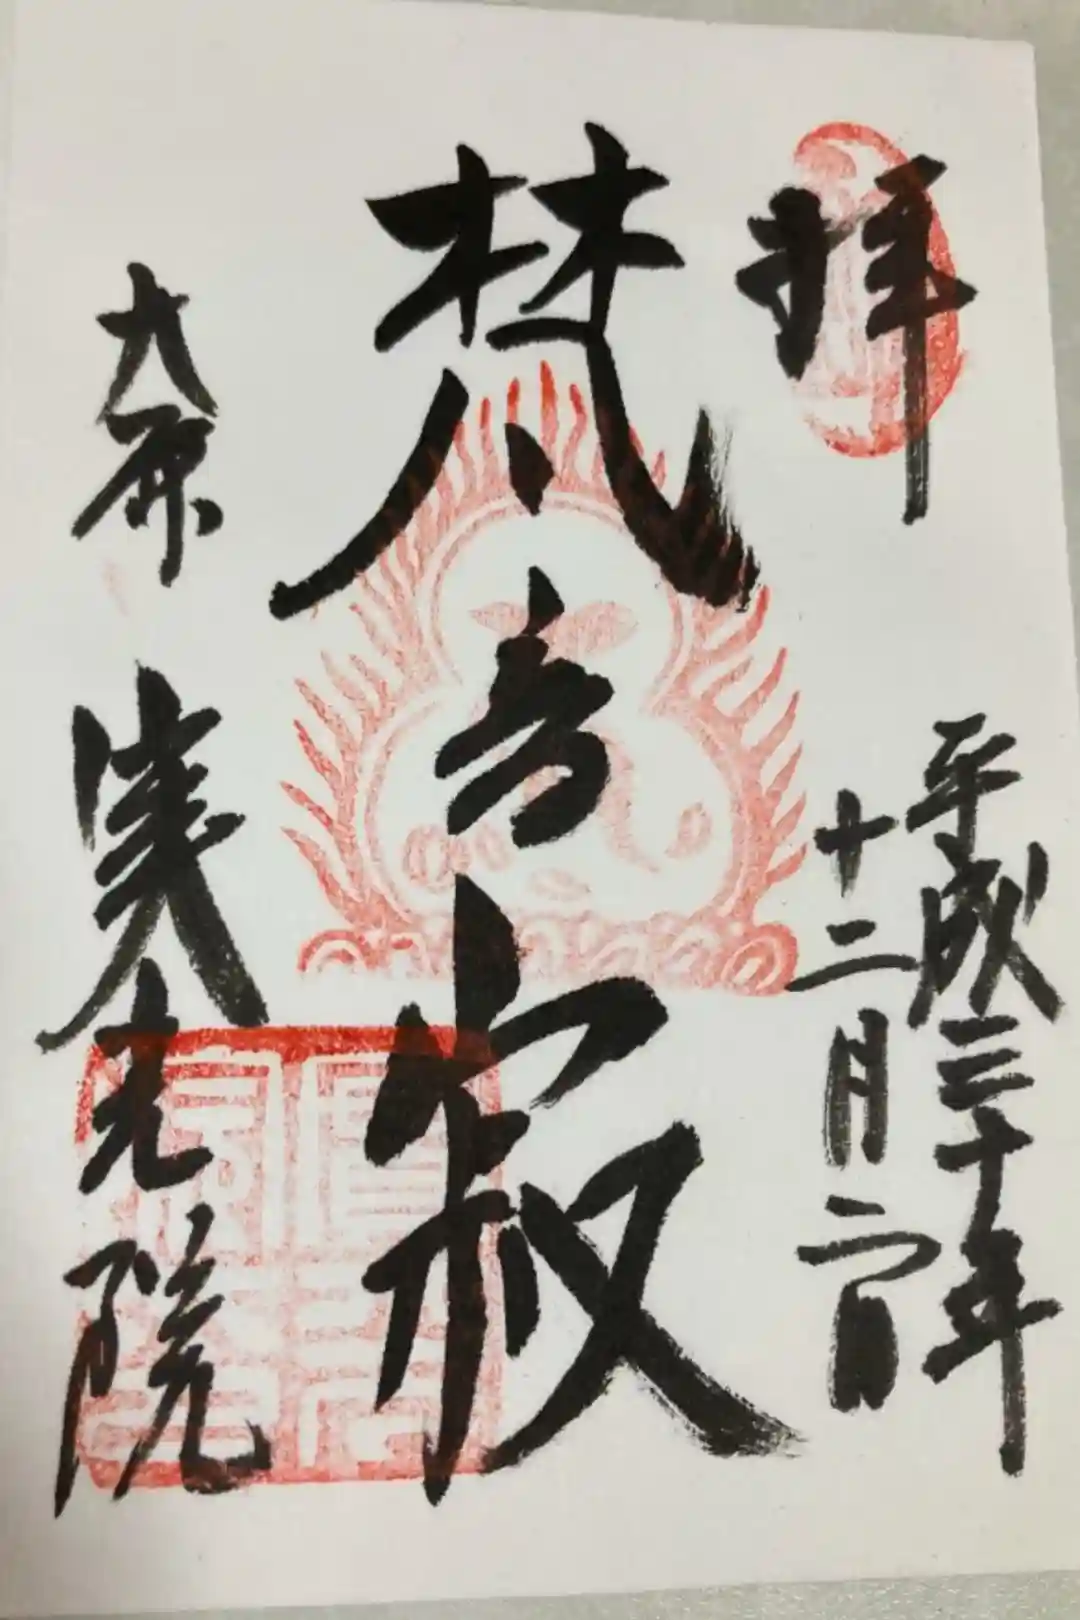 拝
平成三十年
十二月二日
梵音寂
大原 実光院